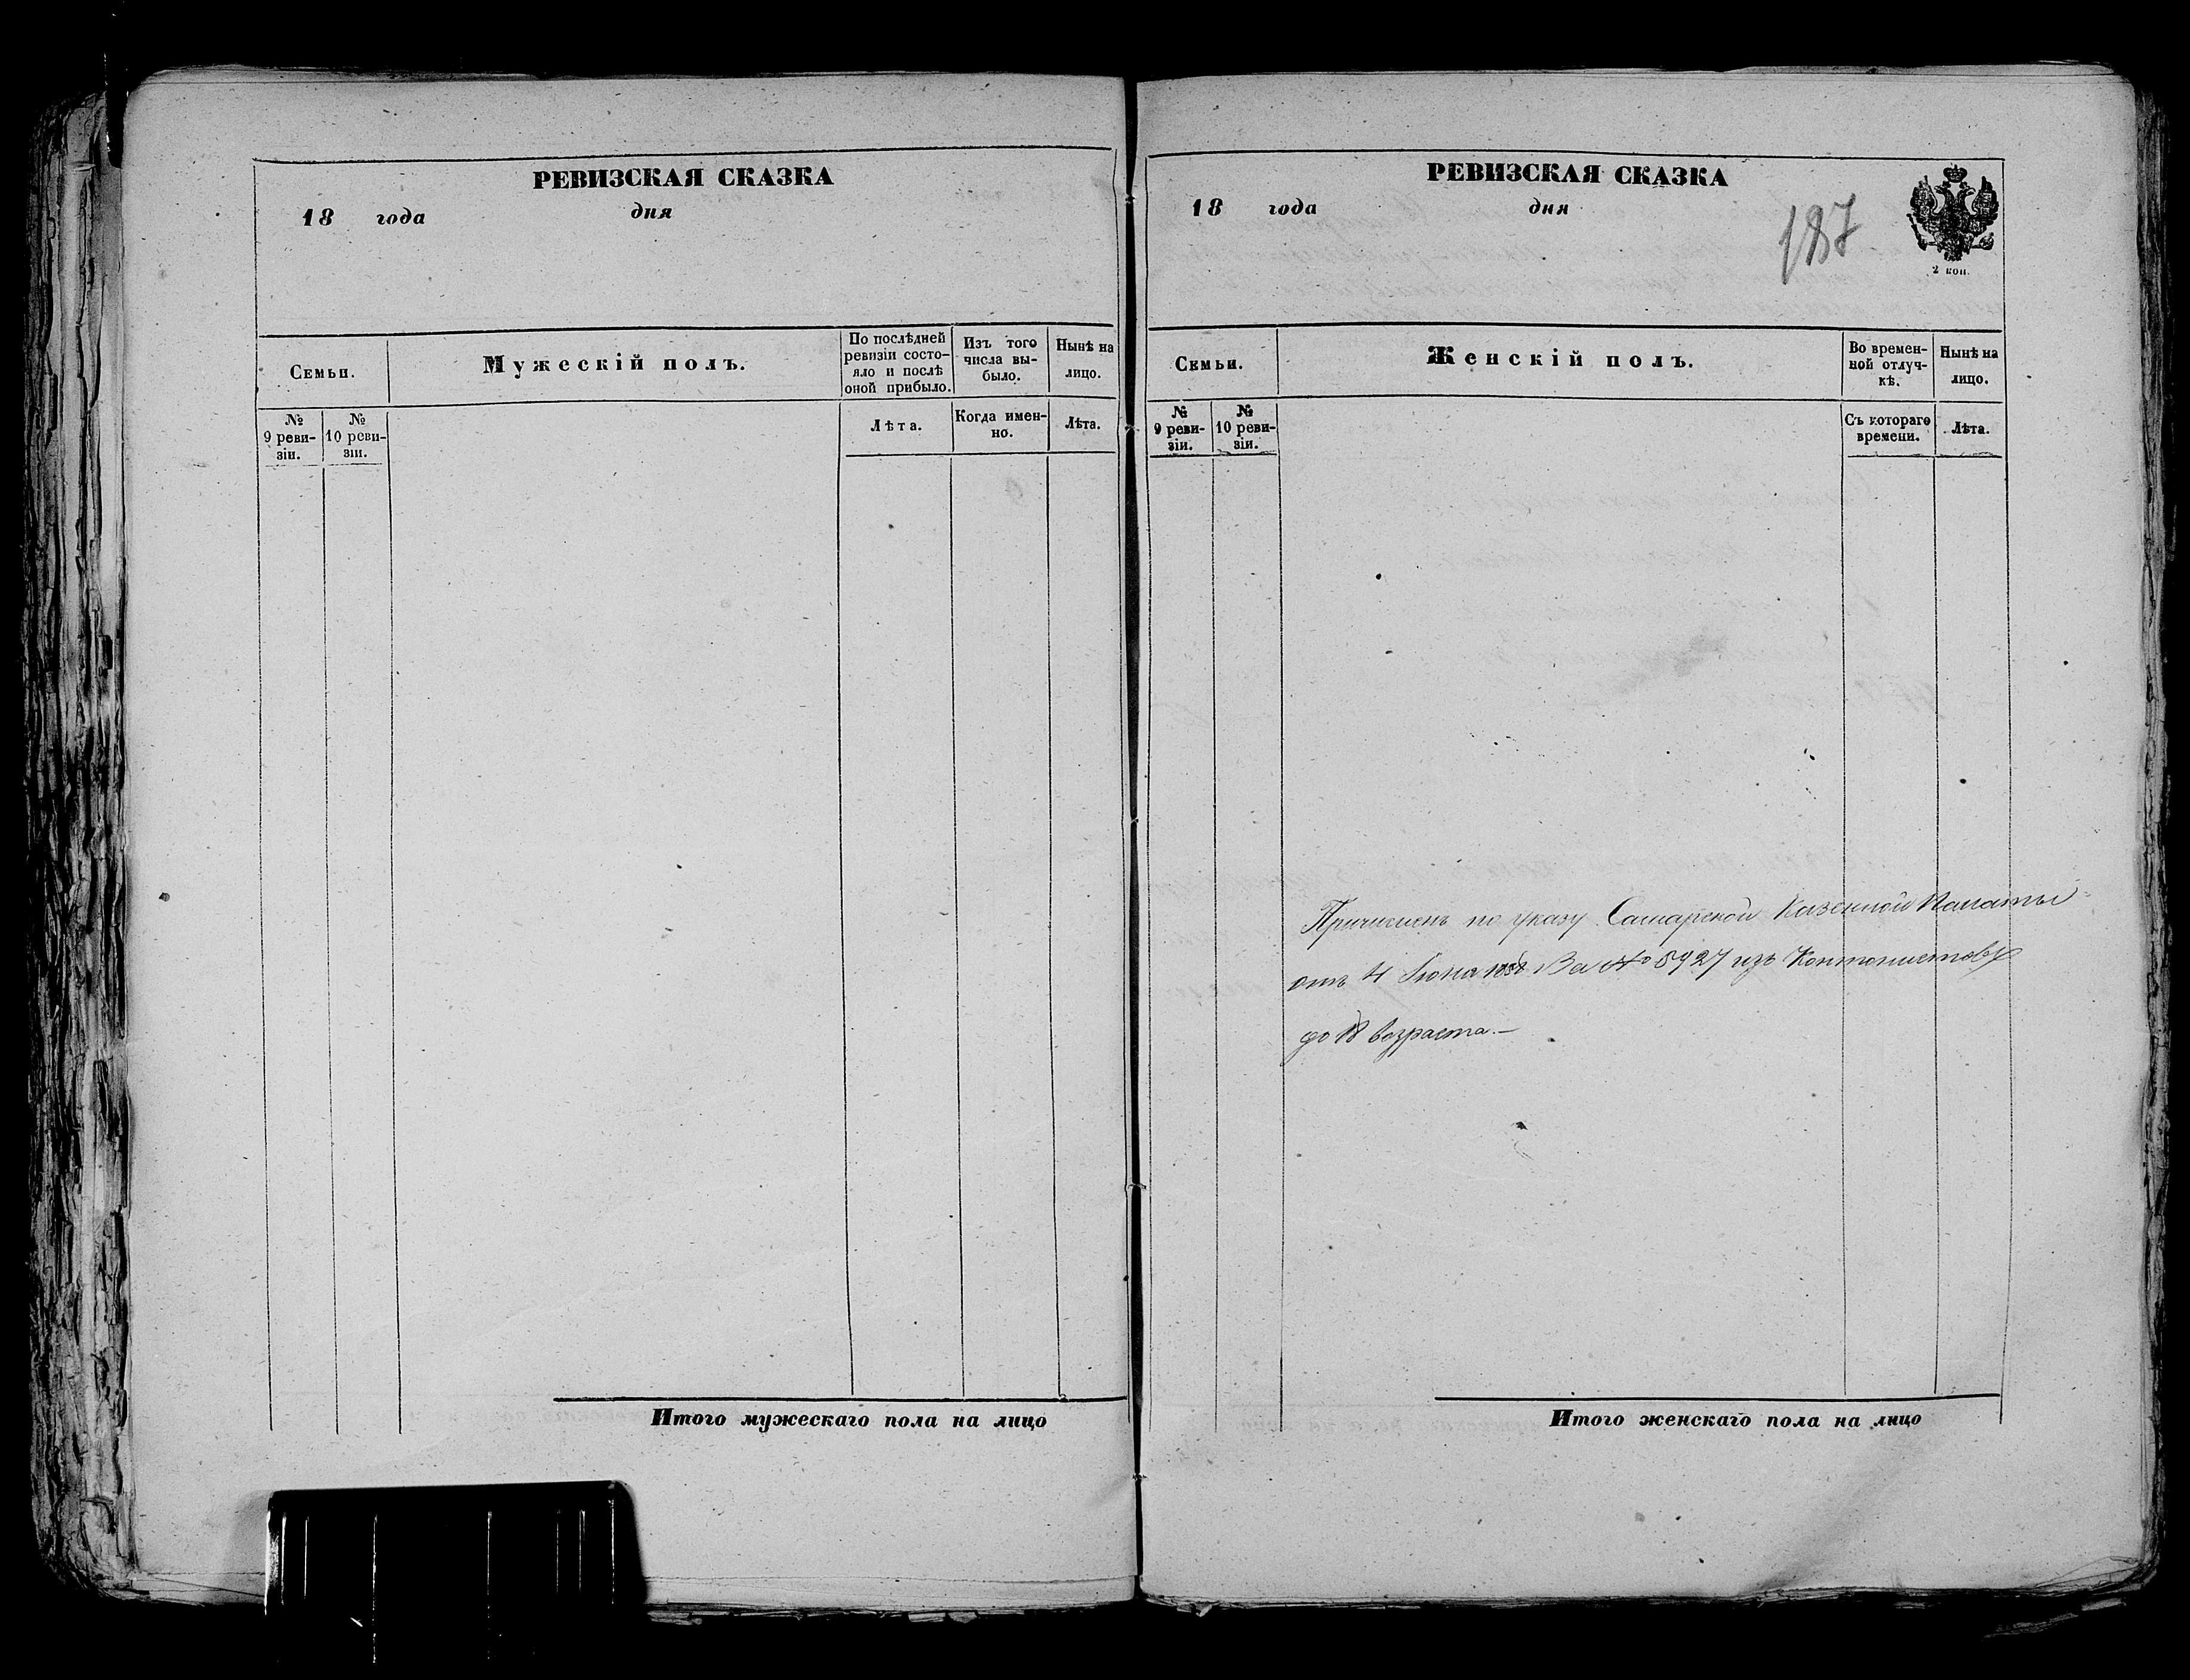 РЕВИЗСКАЯ СКАЗКА
18 года дня
Семьи.
Мужескій полъ.
По послѣдней
ревизіи состо-
яло и послѣ
оной прибыло.
Изъ того
числа вы-
было.
Нынѣ на
лицо.
№
9 реви-
зіи.
№
10 реви-
зіи.
Лѣта.
Когда имен-
но.
Лѣта.
Итого мужескаго пола на лицо
РЕВИЗСКАЯ СКАЗКА
18 года дня
187
2 коп.
Семьи.
Женскій полъ.
Во времен-
ной отлуч-
кѣ.
Нынѣ на
лицо.
№
9 реви-
зіи.
№
10 реви-
зіи.
Съ котораго
времени.
Лѣта.
Причисленъ по указу Самарской Казенной Палаты
отъ 4 Іюня 1858 За № 5927 изъ Контонистовъ
до 18 возраста.—
Итого женскаго пола на лицо